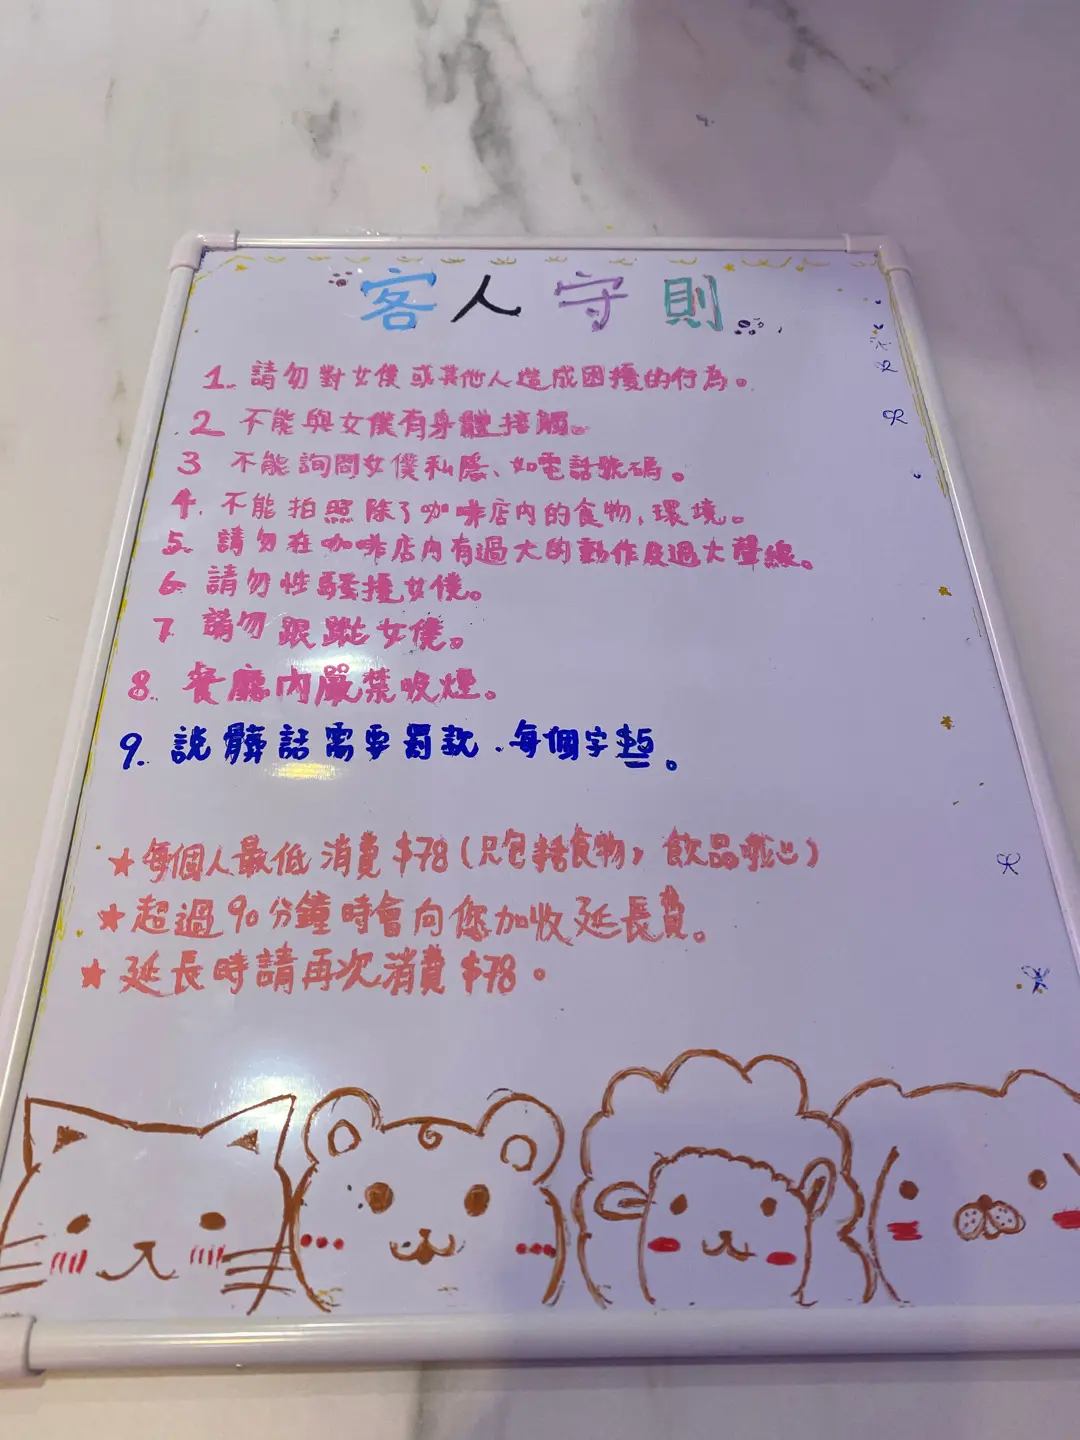 客人守則
1. 請勿對女僕或其他人造成困擾的行為。
2 不能與女僕有身體接觸。
3 不能詢問女僕私隱、如電話號碼。
4. 不能拍照除了咖啡店內的食物,環境。
5. 請勿在咖啡店內有過大的動作及過大聲線。
6. 請勿性騷擾女僕。
7. 請勿跟蹤女僕。
8. 餐廳內嚴禁吸煙。
9. 說髒話需要罰款.每個字$5。
★每個人最低消費$78(只包括食物,飲品)
★超過90分鐘時會向您加收延長費。
★延長時請再次消費$78。